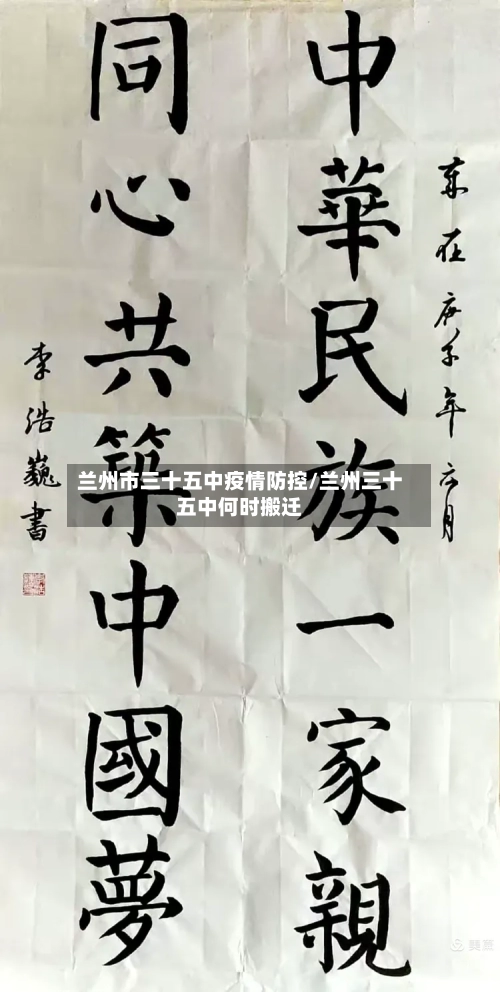 歲在庚子年六月
中華民族一家親
同心共築中國夢
李浩巍書
兰州市三十五中疫情防控/兰州三十
五中何时搬迁
美篇